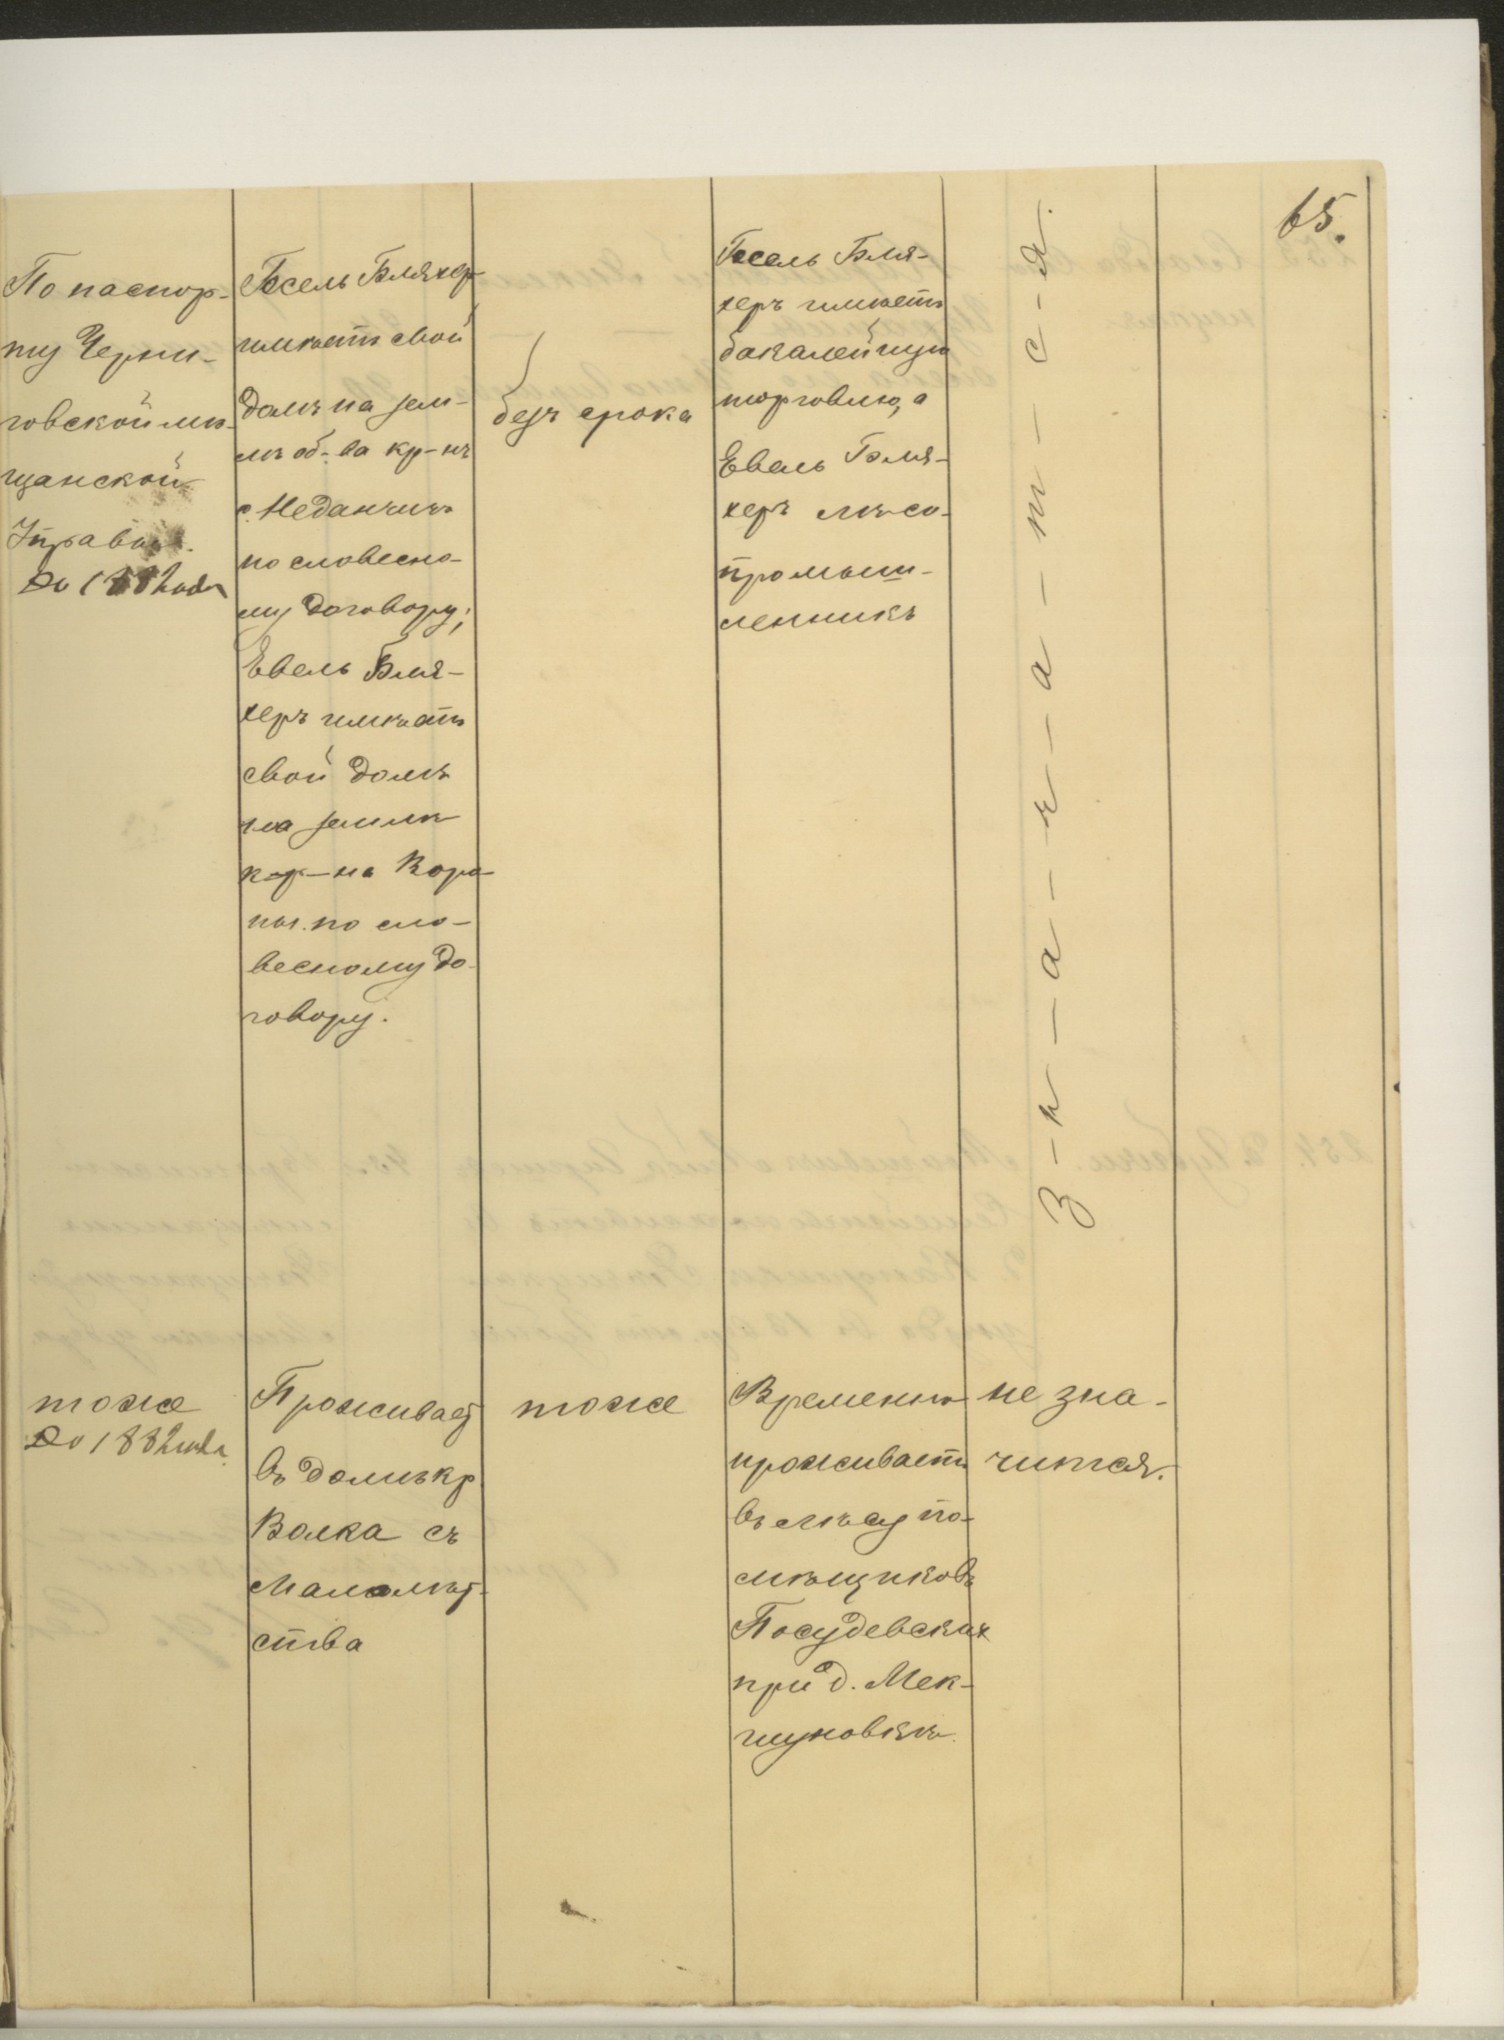 65.
По паспор-
ту Черни-
говской мѣ-
щанской
Управы.
До 1882 года
Іосель Бляхер
имѣетъ свой
домъ на зем-
лѣ об-ва кр-нъ
с. Неданчичъ
по словесно-
му договору;
Евель Бля-
херъ имѣетъ
свой домъ
на землѣ
кр-на Воро-
ны по сло-
весному до-
говору.
безъ срока
Іосель Бля-
херъ имѣетъ
бакалейную
торговлю, а
Евель Бля-
херъ лѣсо-
промыш-
ленникъ
З-н-а-ч-а-т-с-я.
тоже
До 1882 года
Проживает
въ домѣ кр.
Волка съ
малолѣт-
ства
тоже
Временно
проживаетъ
въ лѣсу по-
мѣщиковъ
Посудевскихъ
при д. Мек-
шуновкѣ.
не зна-
чится.